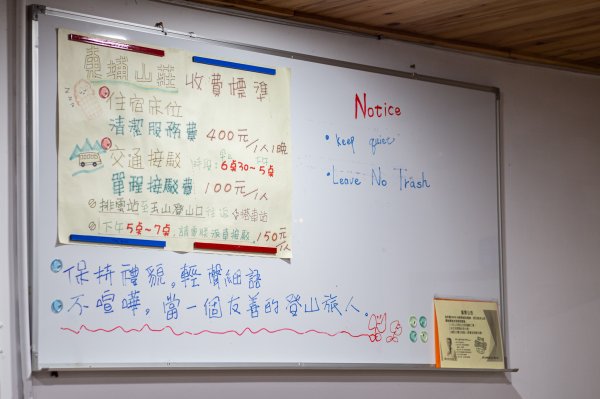 東埔山莊 收費標準
住宿床位
清潔服務費 400元/1人1晚
交通接駁 6点30~5点
單程接駁費 100元/1人
排雲站至玉山登山口
下午5点~7点,請 150元/人
保持禮貌,輕聲細語
不喧嘩,當一個友善的登山旅人.
Notice
• keep quiet
• Leave No Trash